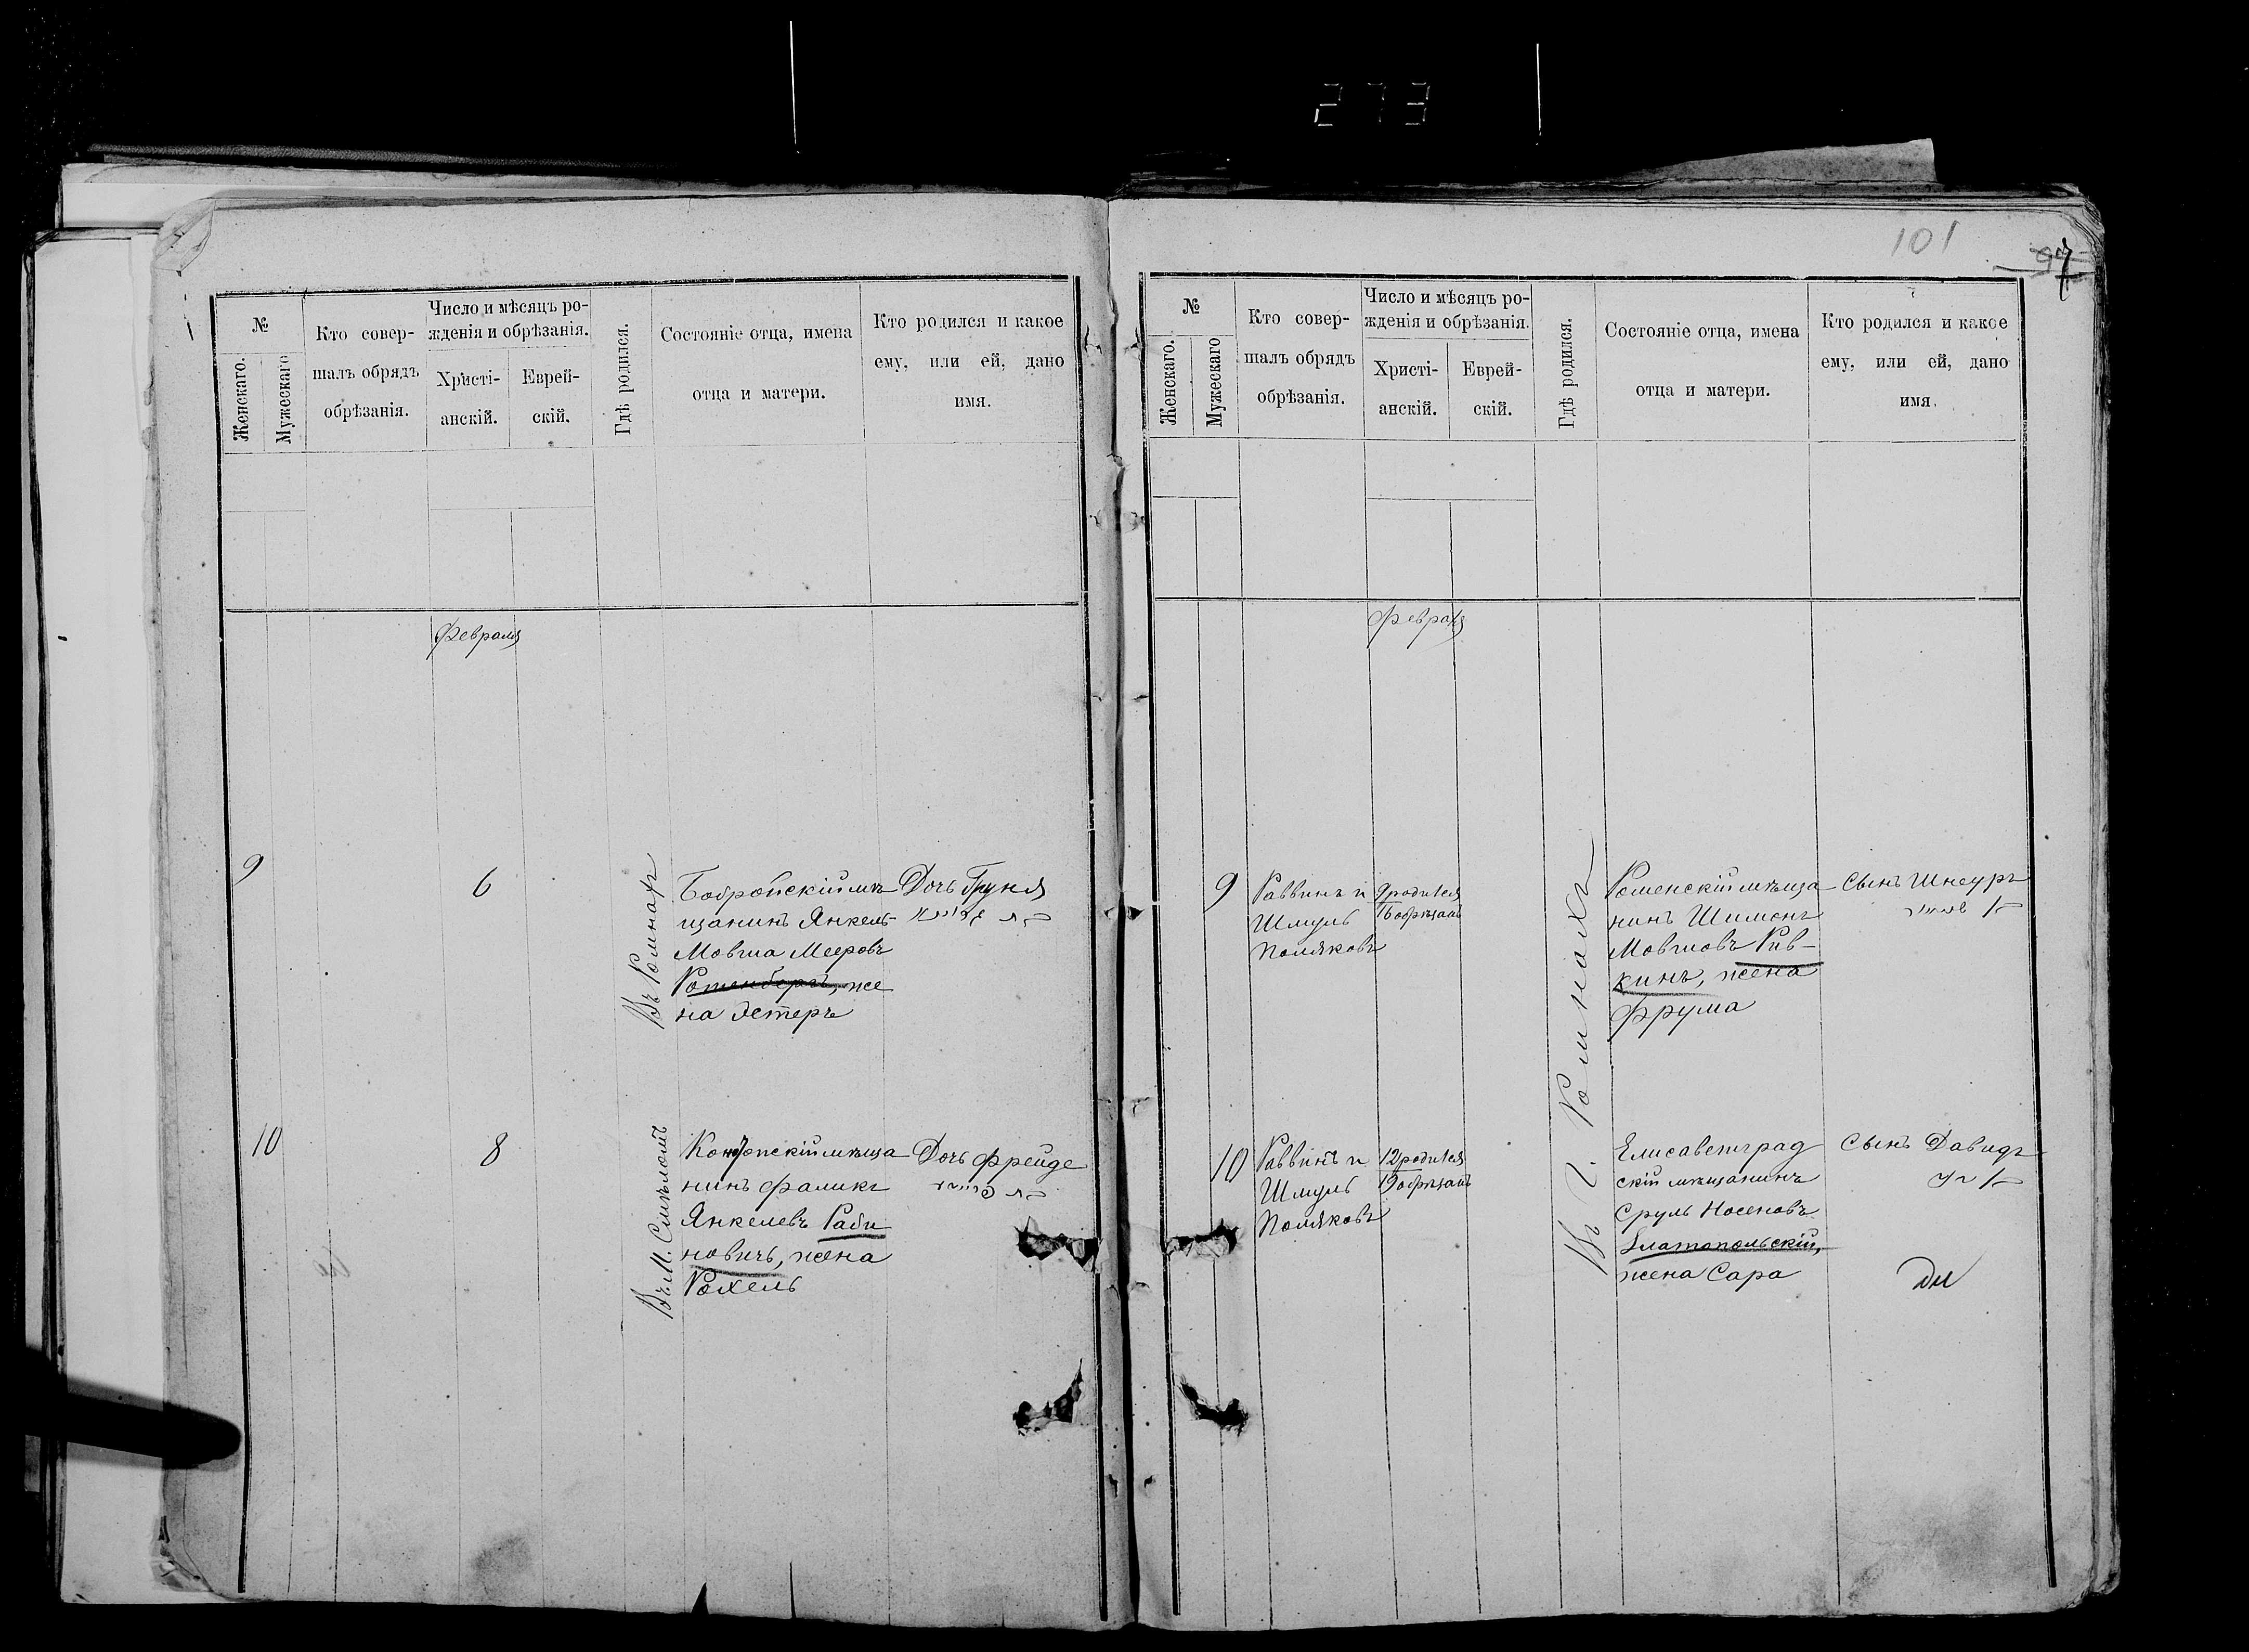 273
101
97
7
№
Женскаго.
Мужескаго
Кто совер-
шалъ обрядъ
обрѣзанія.
Число и мѣсяцъ ро-
жденія и обрѣзанія.
Христі-
анскій.
Еврей-
скій.
Гдѣ родился.
Состояніе отца, имена
отца и матери.
Кто родился и какое
ему, или ей, дано
имя.
Февраля
9
6
Въ Ромнах
Бобройскій мѣ
щанинъ Янкель
Мовша Мееровъ
Ротенбергъ, же
на Эстеръ
Дочь Груня
10
8
Въ М. Смѣломъ
Конотопскій мѣща
нинъ Фаликъ
Янкелевъ Раби
новичъ, жена
Рохель
Дочь Фрейде
№
Женскаго.
Мужескаго
Кто совер-
шалъ обрядъ
обрѣзанія.
Число и мѣсяцъ ро-
жденія и обрѣзанія.
Христі-
анскій.
Еврей-
скій.
Гдѣ родился.
Состояніе отца, имена
отца и матери.
Кто родился и какое
ему, или ей, дано
имя.
Февраля
9
Раввинъ и
Шмуль
Поляковъ
9 родился
16 обрѣзанъ
Въ г. Ромнахъ
Роменскій мѣща
нинъ Шимонъ
Мовшовъ Рив-
кинъ, жена
Фрума
Сынъ Шнеуръ
10
Раввинъ и
Шмуль
Поляковъ
12 родился
19 обрѣзанъ
Елисаветград
скій мѣщанинъ
Сруль Носеновъ
Златопольскій,
жена Сара
Сынъ Давидъ